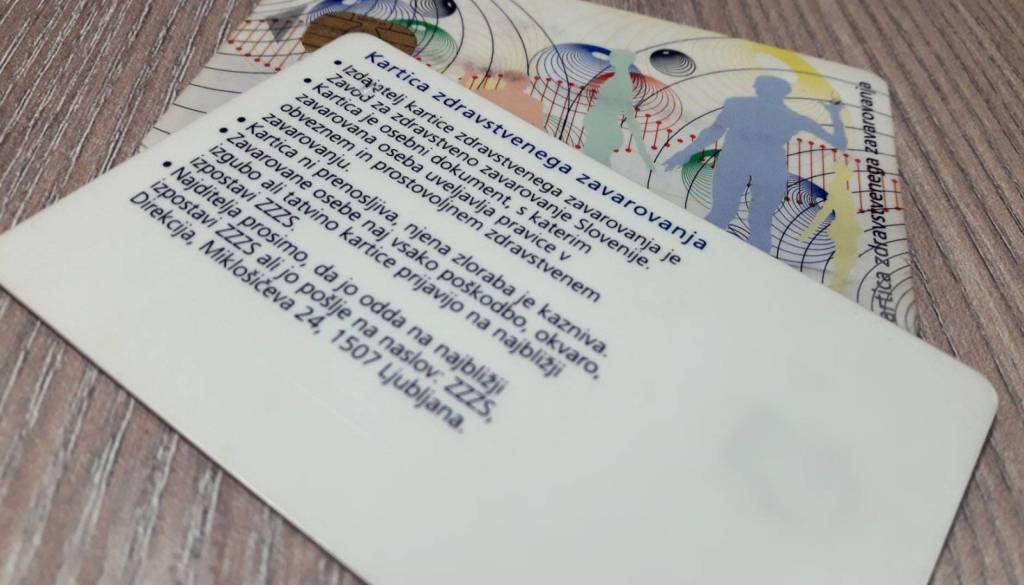 Kartica zdravstvenega zavarovanja
• Izdajatelj kartice zdravstvenega zavarovanja je
Zavod za zdravstveno zavarovanje Slovenije.
• Kartica je osebni dokument, s katerim
zavarovana oseba uveljavlja pravice v
obveznem in prostovoljnem zdravstvenem
zavarovanju.
• Kartica ni prenosljiva, njena zloraba je kazniva.
• Zavarovane osebe naj vsako poškodbo, okvaro,
izgubo ali tatvino kartice prijavijo na najbližji
izpostavi ZZZS.
• Najditelja prosimo, da jo odda na najbližji
izpostavi ZZZS ali jo pošlje na naslov: ZZZS,
Direkcija, Miklošičeva 24, 1507 Ljubljana.
artica zdravstvenega zavarovanja